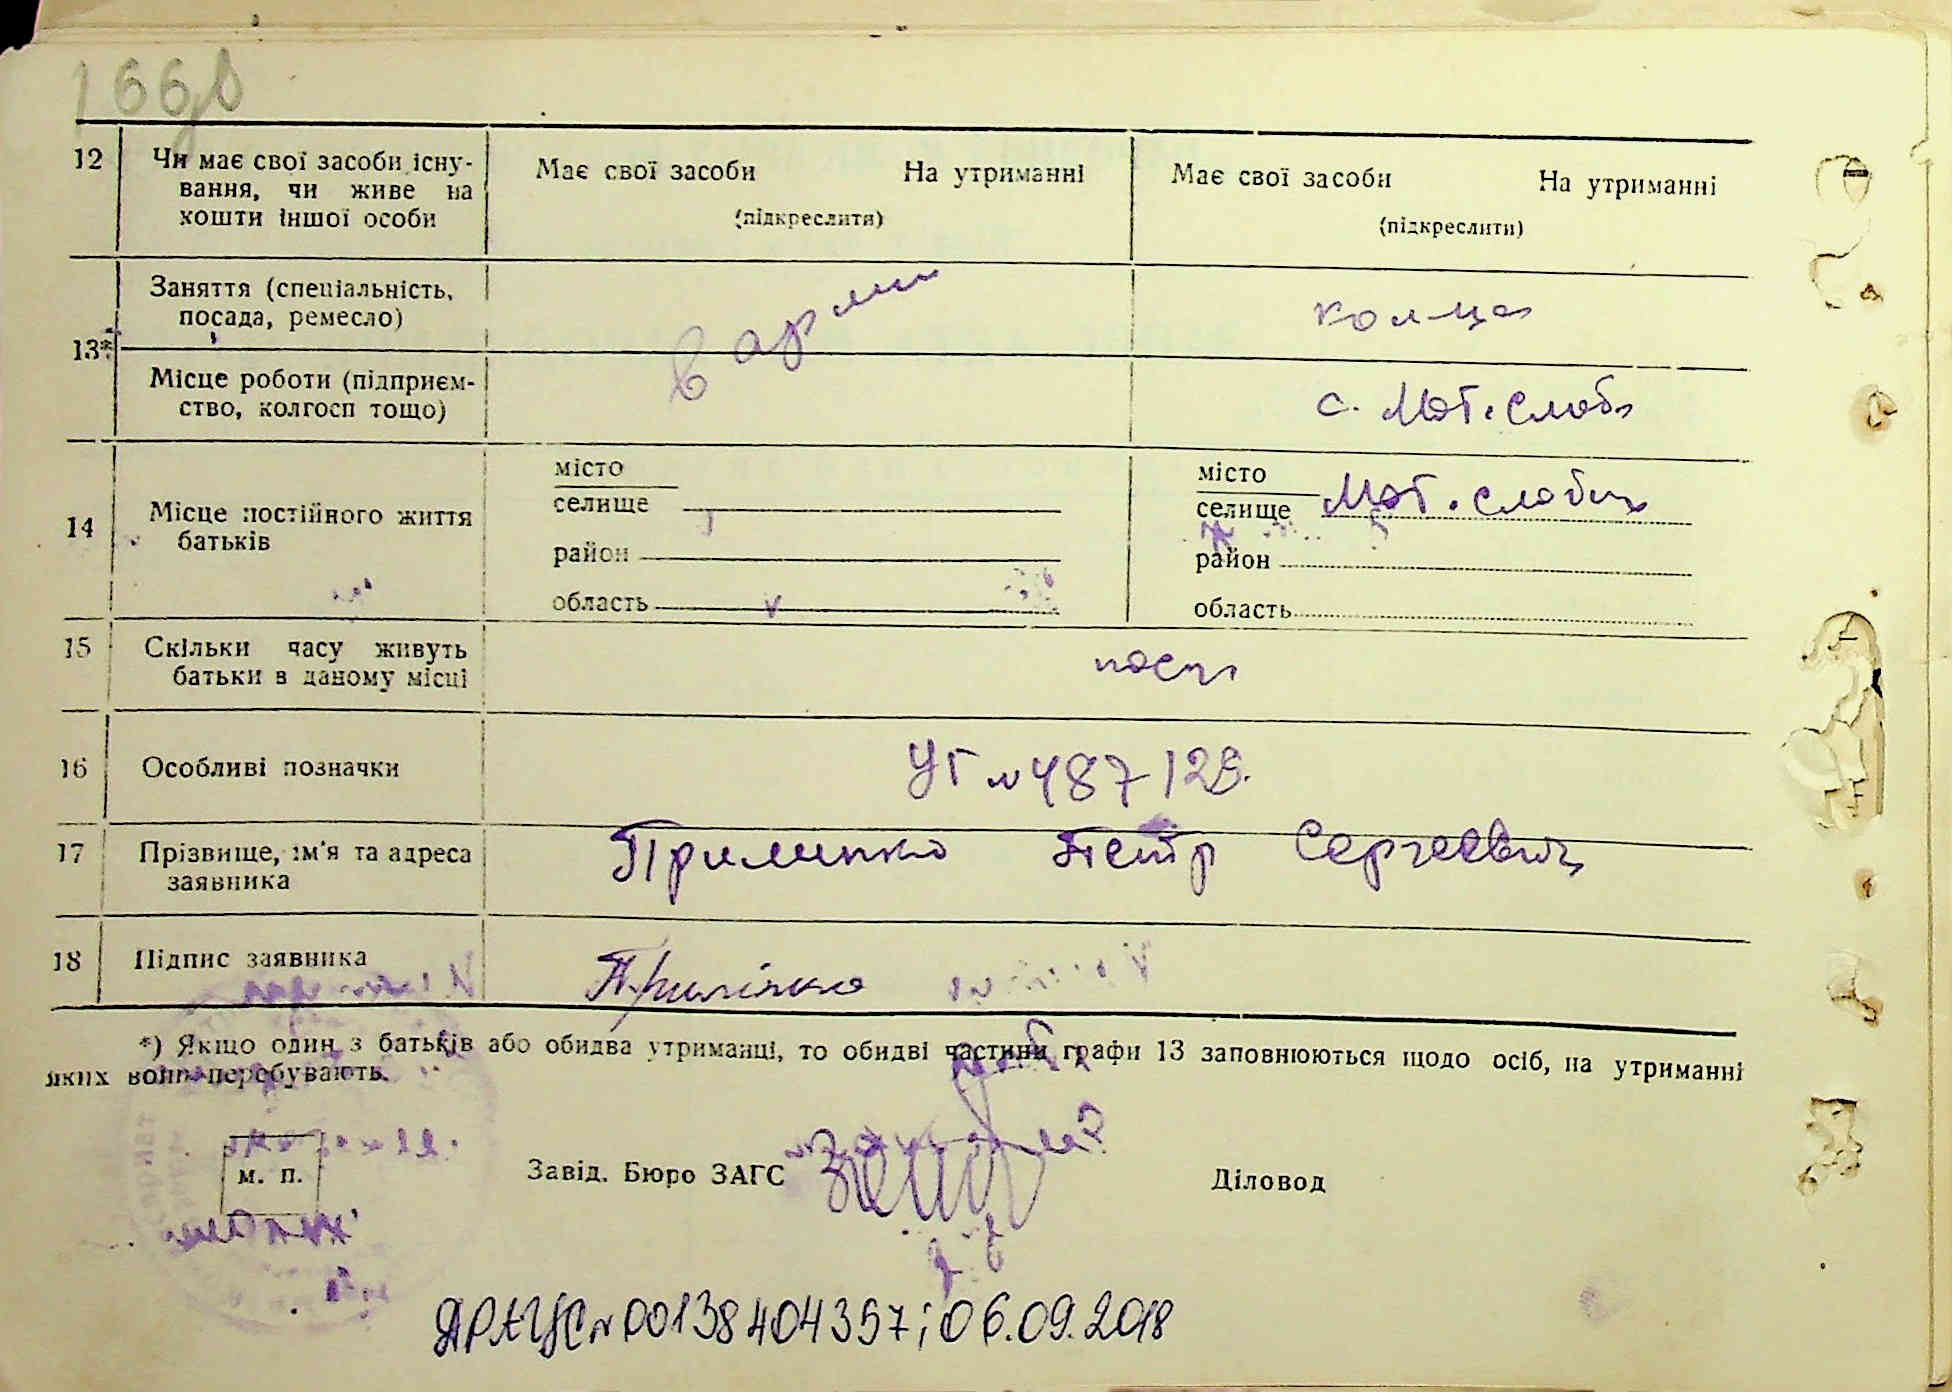 12 Чи має свої засоби існу-
вання, чи живе на
кошти іншої особи
Має свої засоби На утриманні
(підкреслити)
Має свої засоби На утриманні
(підкреслити)
13*
Заняття (спеціальність,
посада, ремесло)
в армии
колхоз
Місце роботи (підприєм-
ство, колгосп тощо)
с. Мот. Слоб
14 Місце постійного життя
батьків
місто
селище
район
область
місто
селище Мот. слобод
район
область
15 Скільки часу живуть
батьки в даному місці
пост
16 Особливі позначки
УГ № 487129.
17 Прізвище, ім'я та адреса
заявника
Петр Сергеевич
18 Підпис заявника
*) Якщо один з батьків або обидва утриманці, то обидві частини графи 13 заповнюються щодо осіб, на утриманні
яких вони перебувають.
м. п.
Завід. Бюро ЗАГС
Діловод
ДРАЦС № 00138404357; 06.09.2018